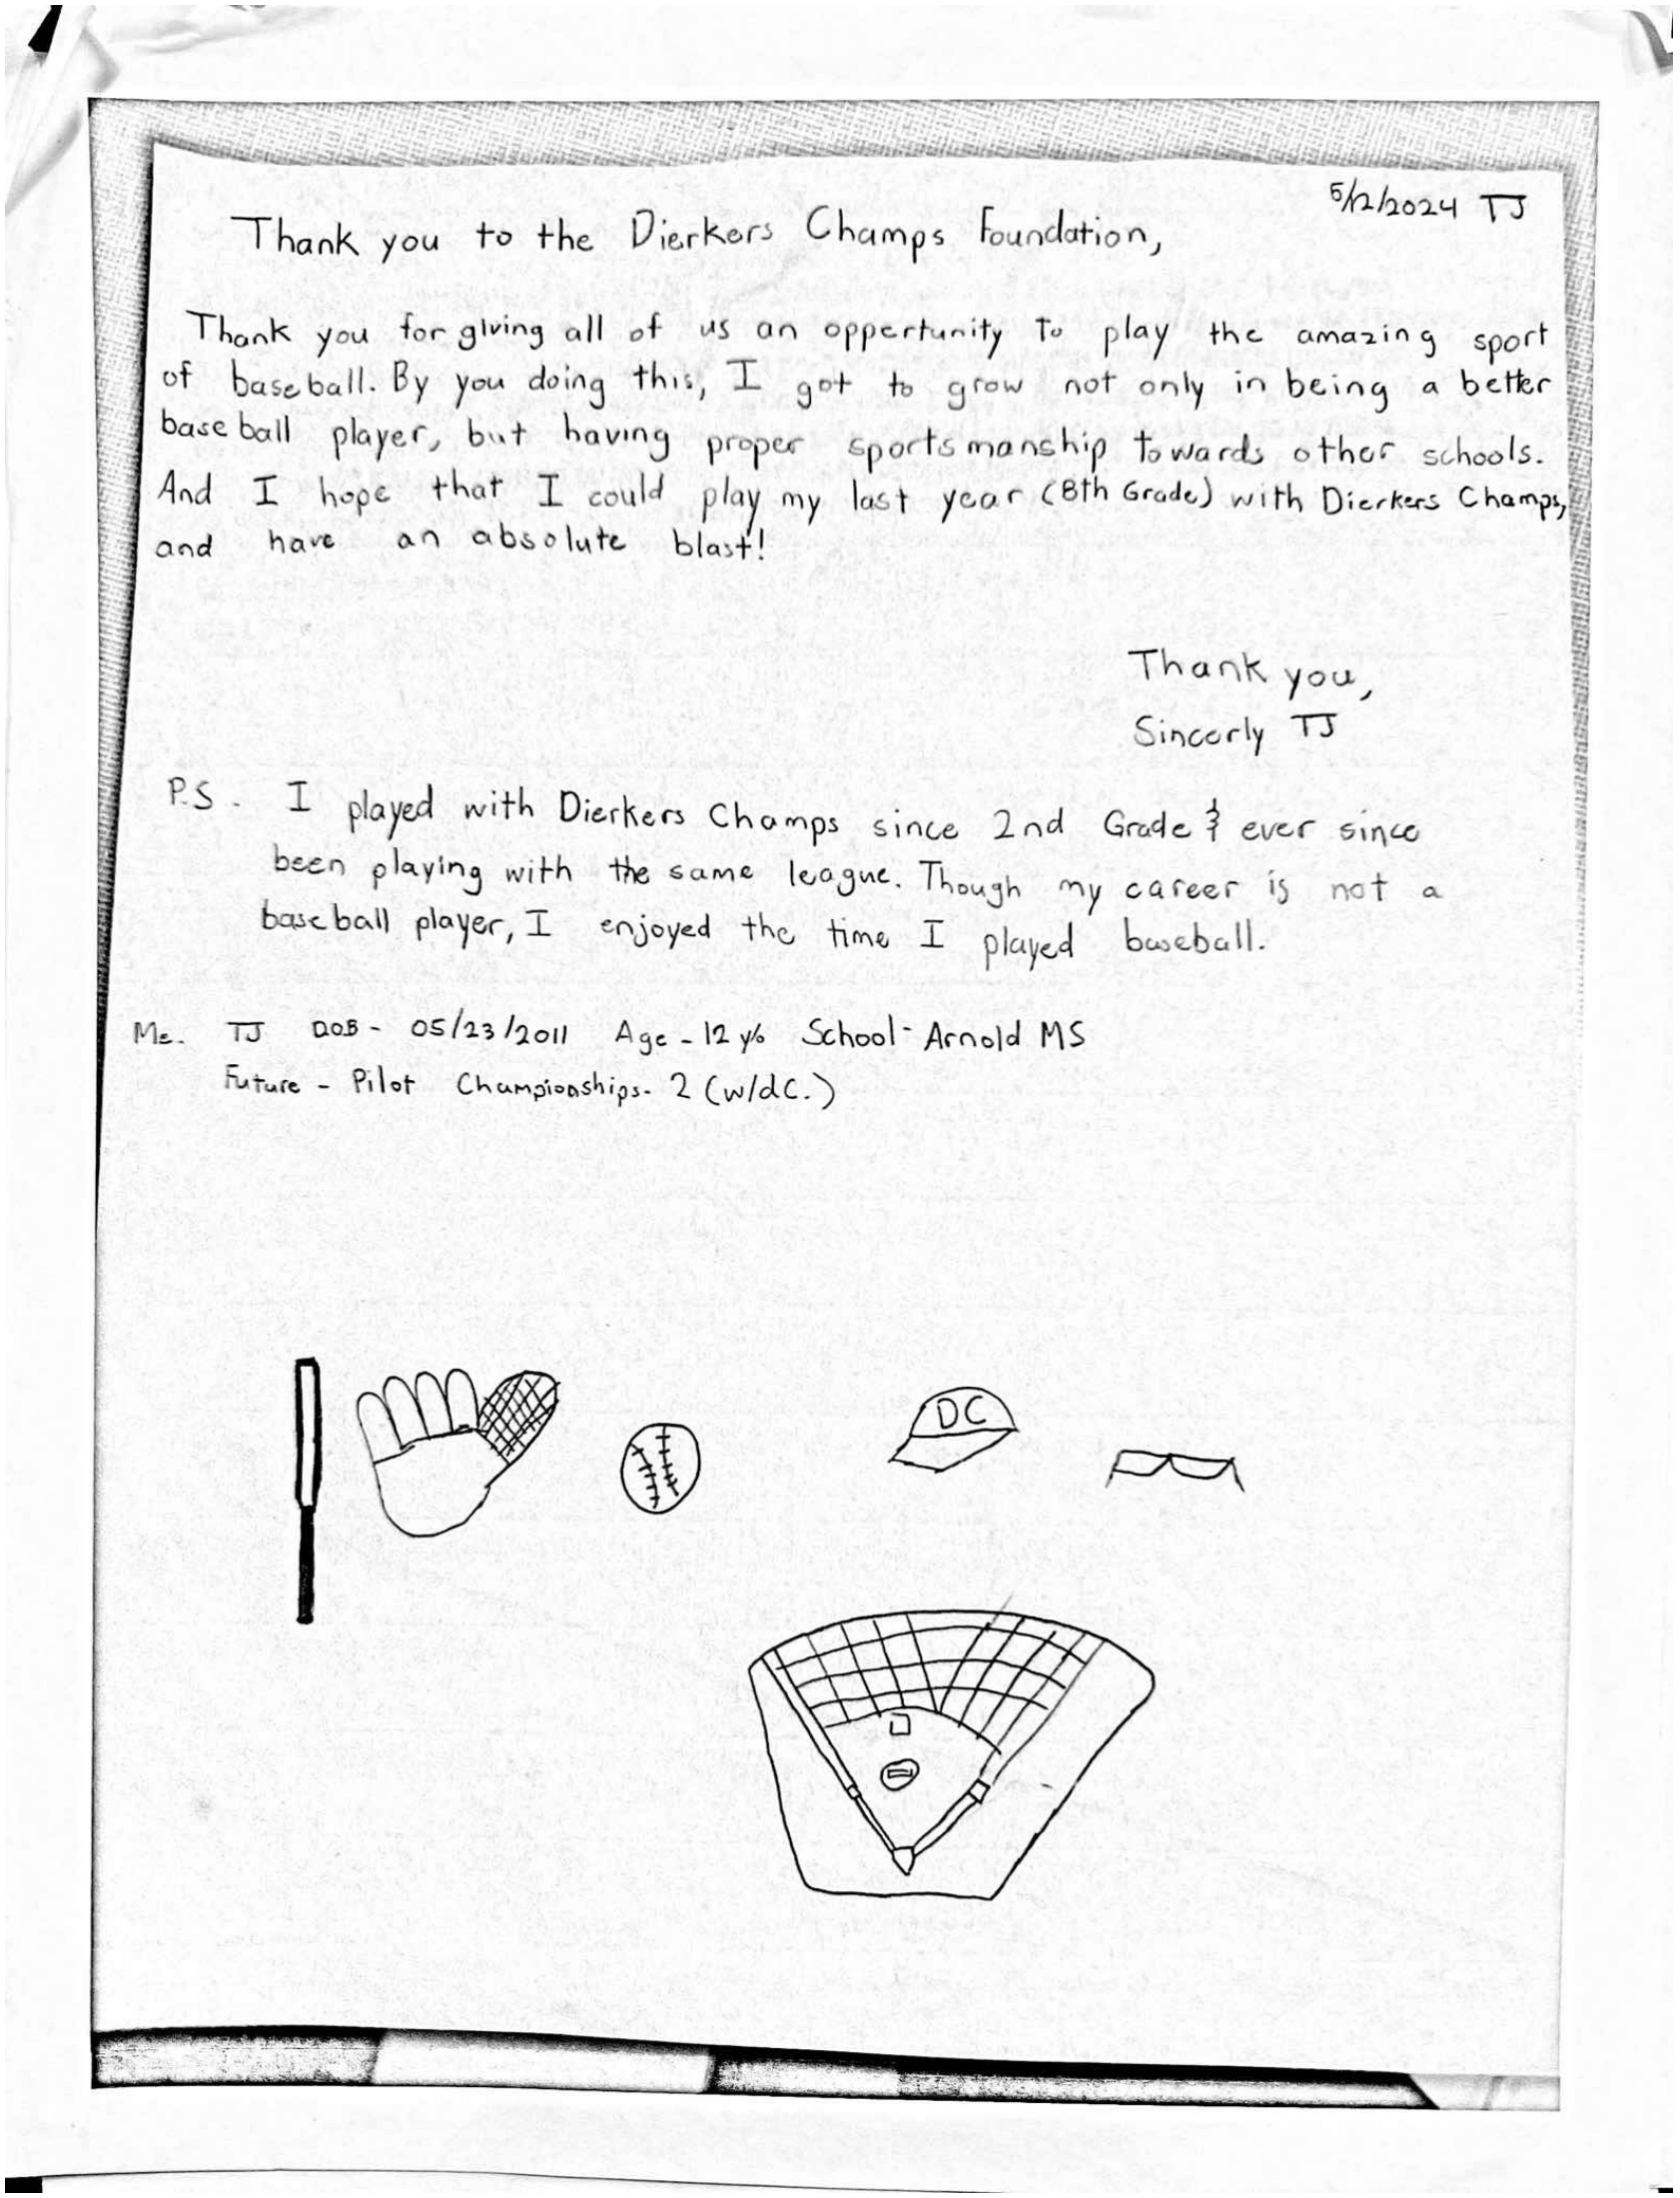 5/2/2024 TJ
Thank you to the Dierkers Champs Foundation,
Thank you for giving all of us an oppertunity to play the amazing sport
of baseball. By you doing this, I got to grow not only in being a better
baseball player, but having proper sportsmanship towards other schools.
And I hope that I could play my last year (8th Grade) with Dierkers Champs,
and have an absolute blast!
Thank you,
Sincerly TJ
P.S. I played with Dierkers Champs since 2nd Grade & ever since
been playing with the same league. Though my career is not a
baseball player, I enjoyed the time I played baseball.
Me. TJ DOB - 05/23/2011 Age - 12 y/o School - Arnold MS
Future - Pilot Championships - 2 (w/dC.)
DC